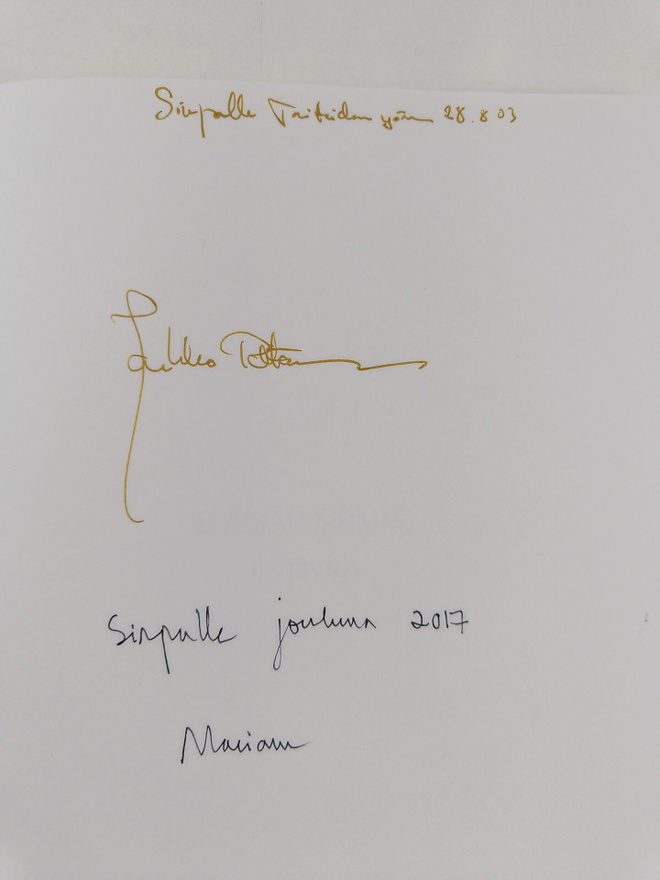 Sirpalle Taiteiden yönä 28.8 03
Sirpalle jouluna 2017
Mariam